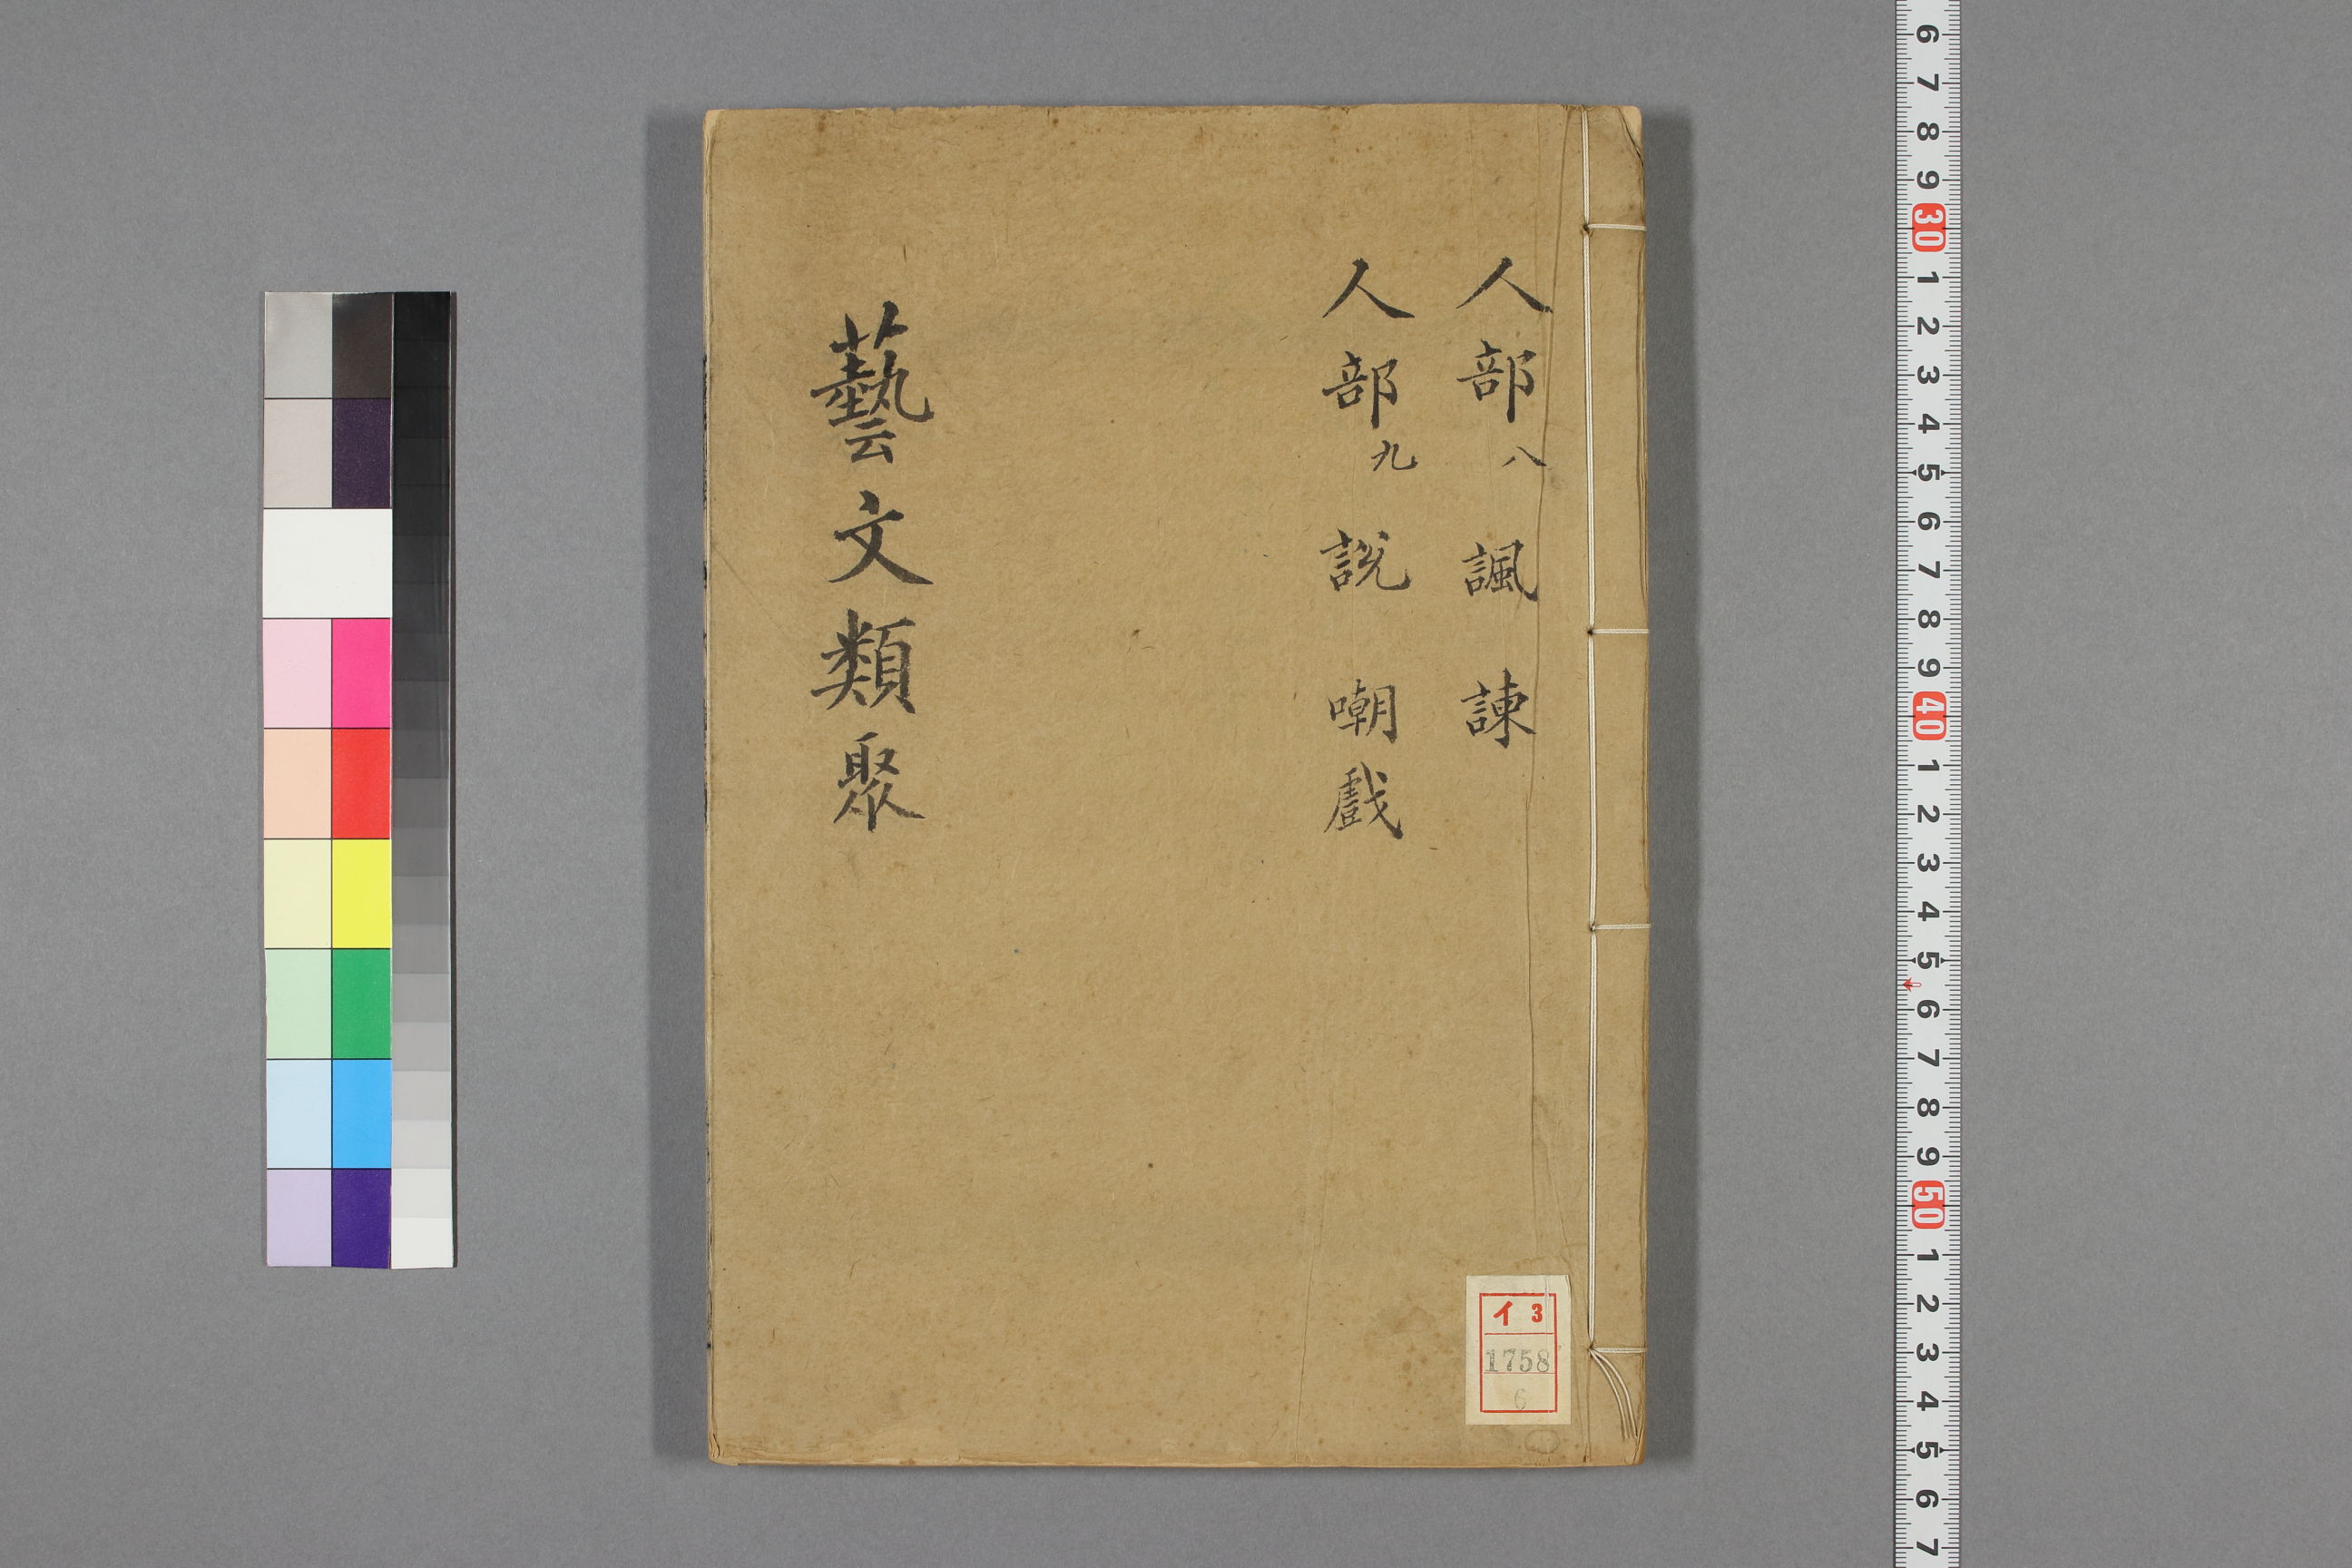 人部八 諷 諫
人部九 說 嘲戲
藝文類聚
イ 3
1758
6
6 7 8 9 30 1 2 3 4 5 6 7 8 9 40 1 2 3 4 5 6 7 8 9 50 1 2 3 4 5 6 7